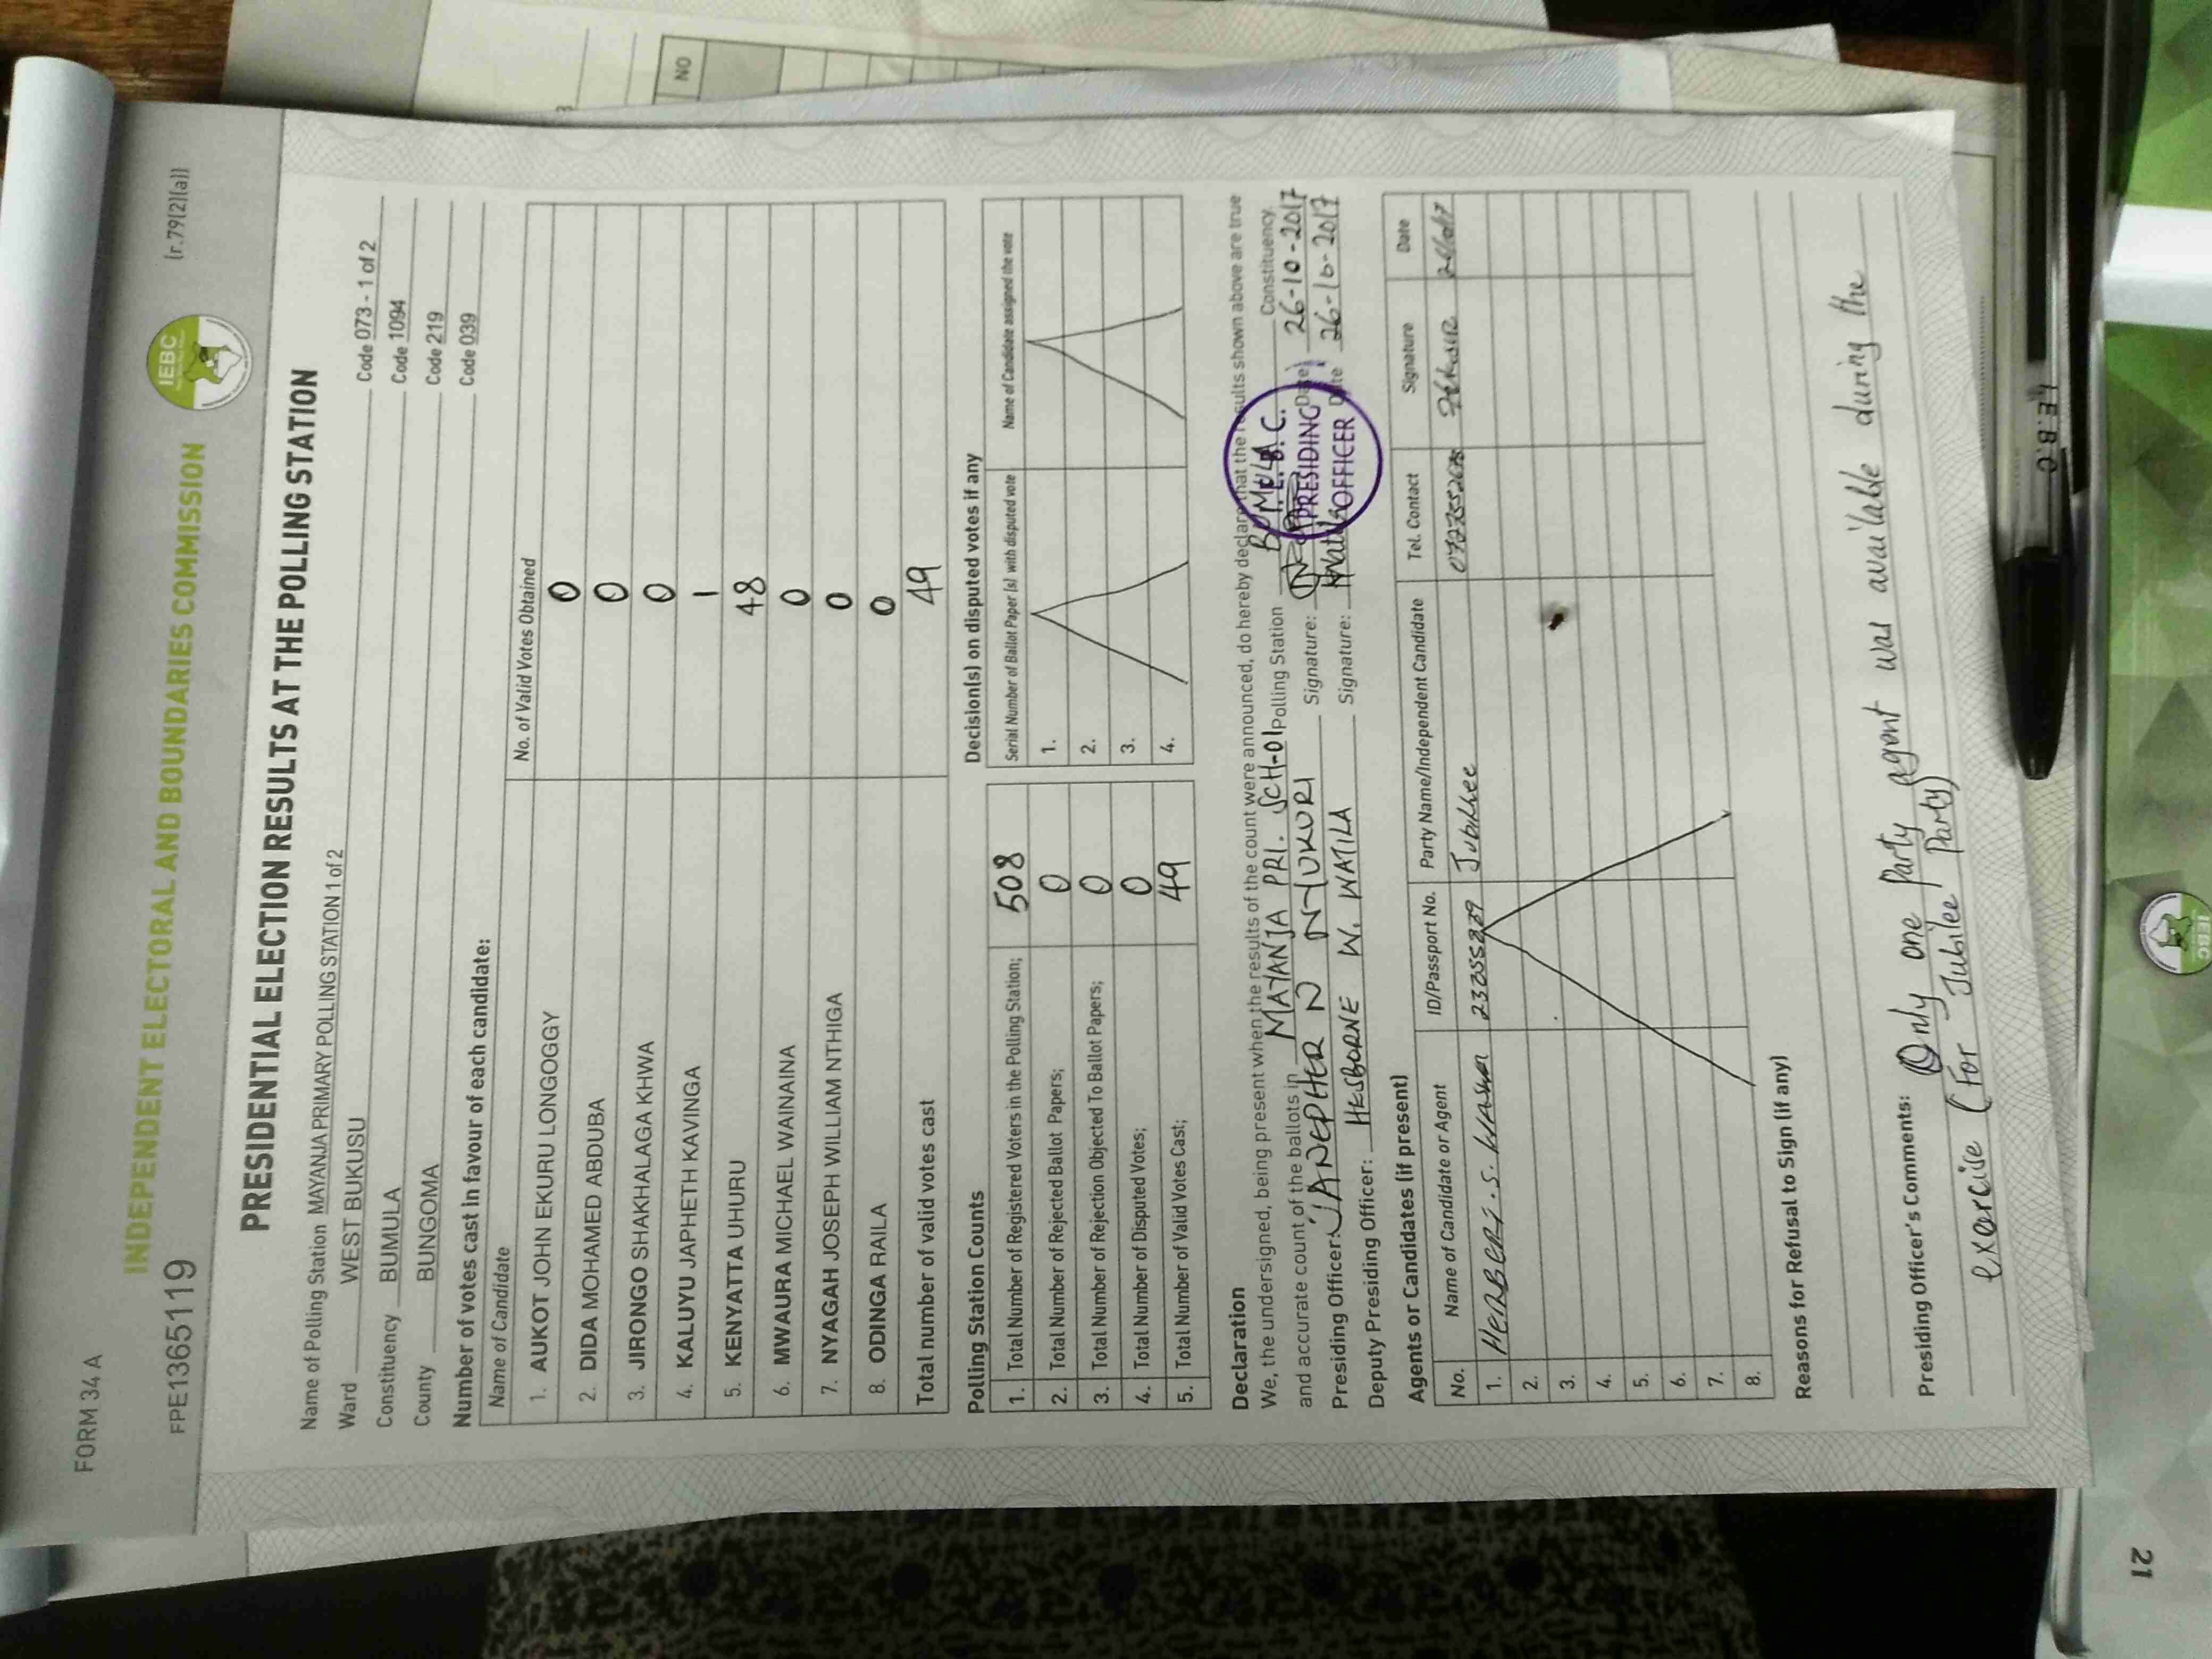 FORM 34 A
(r.79(2)(a))
FPE1365119
IEBC
INDEPENDENT ELECTORAL AND BOUNDARIES COMMISSION
PRESIDENTIAL ELECTION RESULTS AT THE POLLING STATION
Name of Polling Station MAYANJA PRIMARY POLLING STATION 1 of 2 Code 073 - 1 of 2
Ward WEST BUKUSU Code 1094
Constituency BUMULA Code 219
County BUNGOMA Code 039
Number of votes cast in favour of each candidate:
Name of Candidate No. of Valid Votes Obtained
1. AUKOT JOHN EKURU LONGOGGY 0
2. DIDA MOHAMED ABDUBA 0
3. JIRONGO SHAKHALAGA KHWA 0
4. KALUYU JAPHETH KAVINGA 1
5. KENYATTA UHURU 48
6. MWAURA MICHAEL WAINAINA 0
7. NYAGAH JOSEPH WILLIAM NTHIGA 0
8. ODINGA RAILA 0
Total number of valid votes cast 49
Polling Station Counts
1. Total Number of Registered Voters in the Polling Station; 508
2. Total Number of Rejected Ballot Papers; 0
3. Total Number of Rejection Objected To Ballot Papers; 0
4. Total Number of Disputed Votes; 0
5. Total Number of Valid Votes Cast; 49
Decision(s) on disputed votes if any
Serial Number of Ballot Paper (s) with disputed vote Name of Candidate assigned the vote
1.
2.
3.
4.
Declaration
We, the undersigned, being present when the results of the count were announced, do hereby declare that the results shown above are true
and accurate count of the ballots in MAYANJA PRI. SCH-01 Polling Station BUMULA Constituency.
Presiding Officer: JANEPHER N NYUKURI Signature: Date 26-10-2017
Deputy Presiding Officer: HESBORNE W. WATILA Signature: Date 26-10-2017
I.E.B.C.
PRESIDING
OFFICER
Agents or Candidates (if present)
No. Name of Candidate or Agent ID/Passport No. Party Name/Independent Candidate Tel. Contact Signature Date
1. Jubilee
2.
3.
4.
5.
6.
7.
8.
Reasons for Refusal to Sign (if any)
Presiding Officer's Comments: Only one Party agent was available during the
exercise (For Jubilee Party)
NO
I.E.B.C
IEBC
21